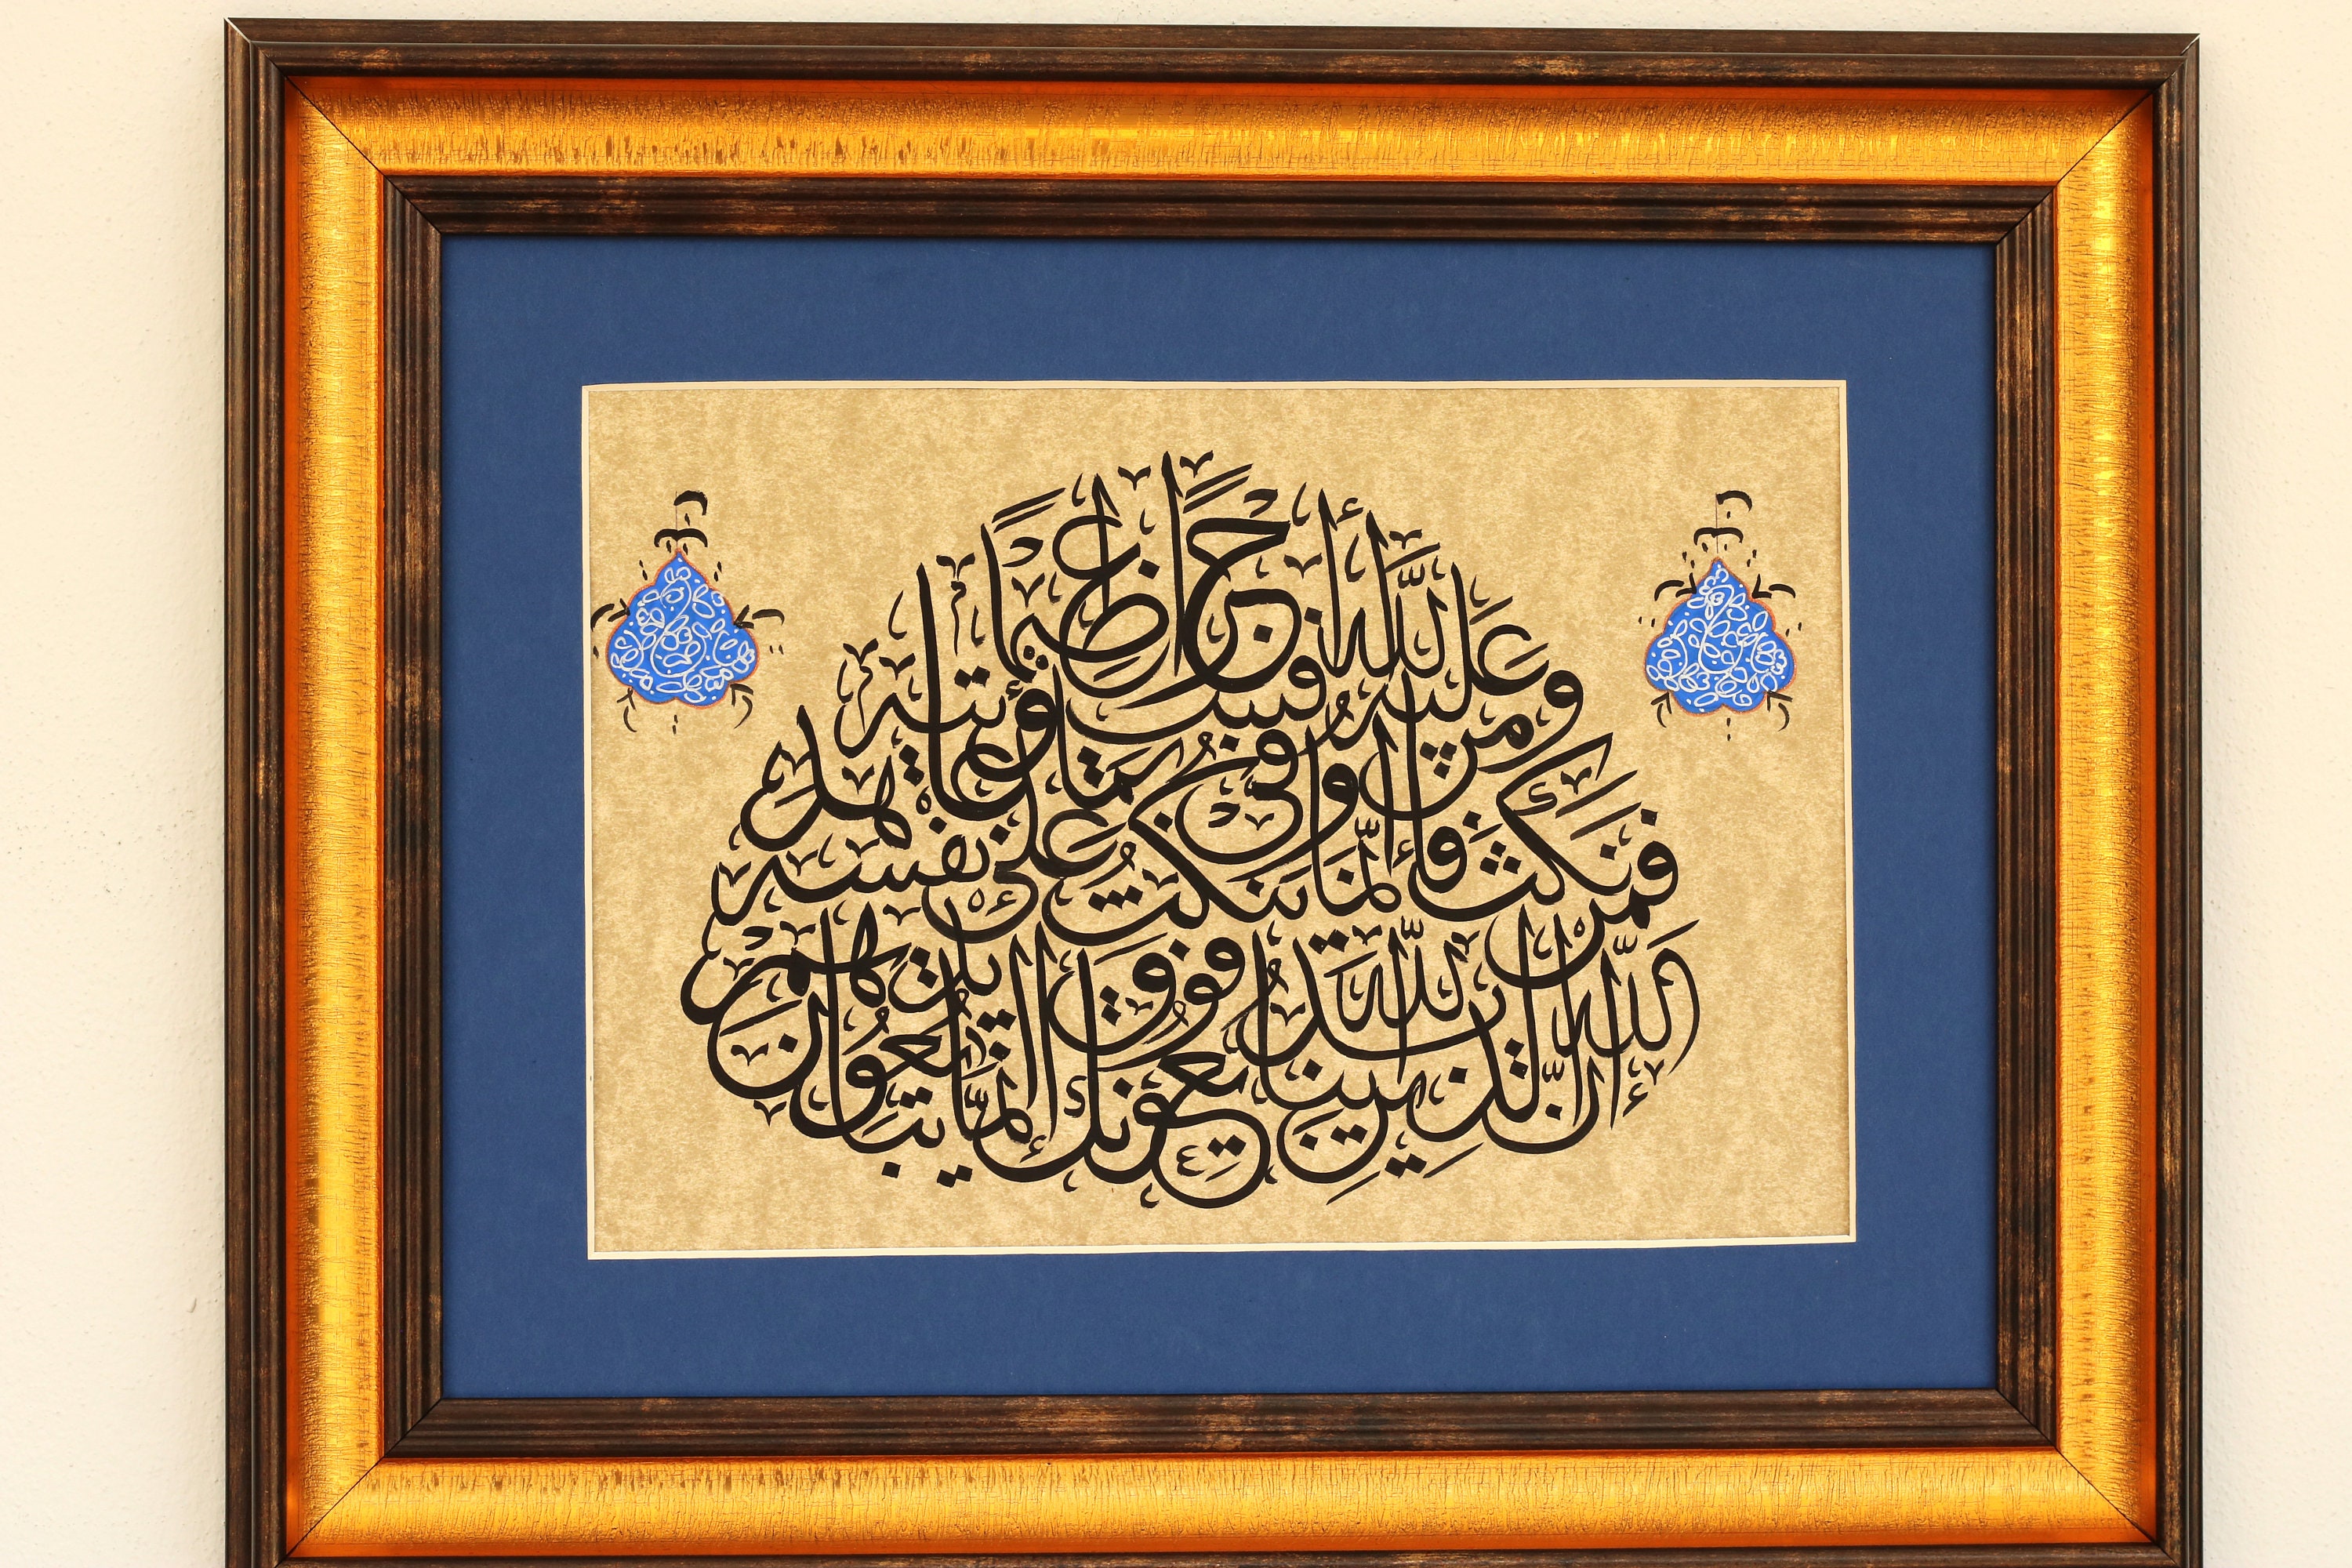 إن الذين يبايعونك إنما يبايعون
الله يد الله فوق أيديهم
فمن نكث فإنما ينكث على نفسه
ومن أوفى بما عاهد
عليه الله فسيؤتيه أجرا عظيما